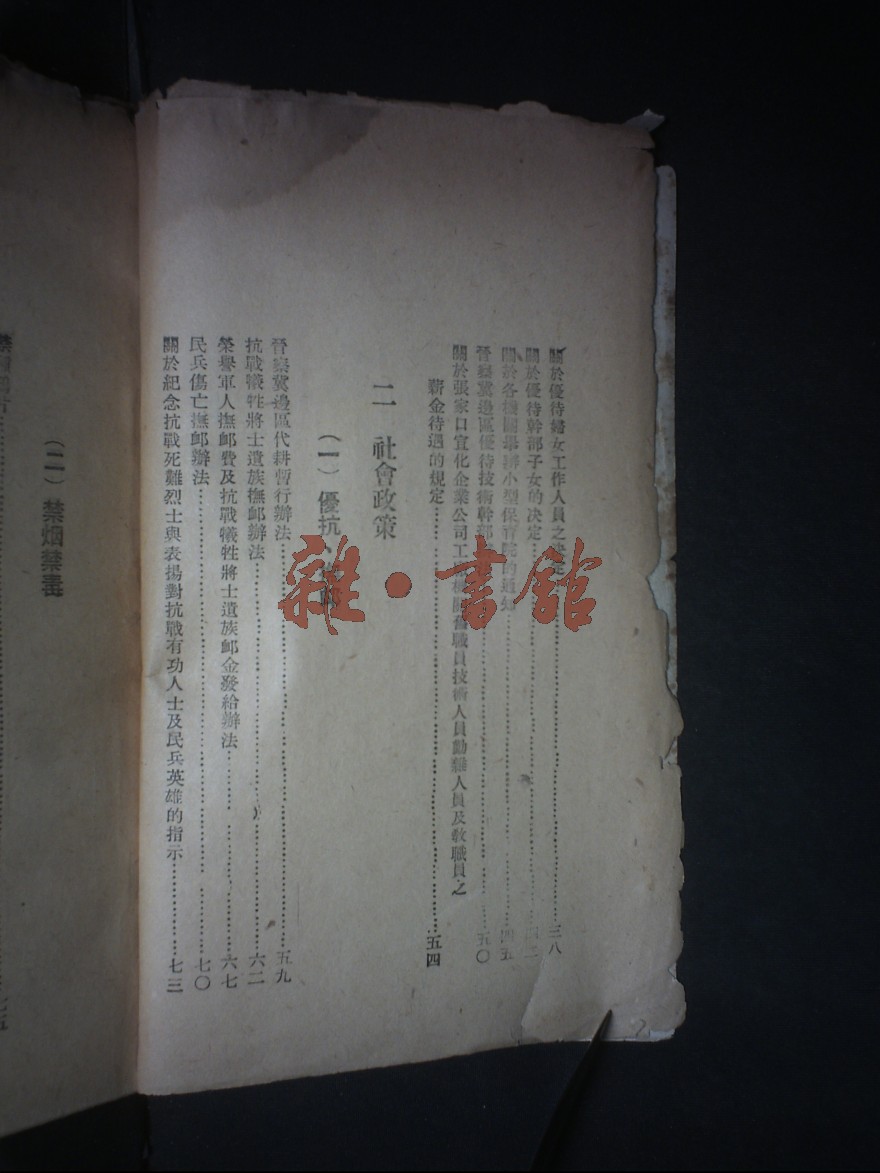 關於優待婦女工作人員之決定……三八
關於優待幹部子女的决定……四二
關於各機關舉辦小型保育院的通知……四五
晉察冀邊區優待技術幹部……五〇
關於張家口宣化企業公司工廠機關舊職員技術人員勤雜人員及教職員之
薪金待遇的規定……五四
二 社會政策
（一）優抗、
晉察冀邊區代耕暫行辦法……五九
抗戰犧牲將士遺族撫卹辦法……六二
榮譽軍人撫卹費及抗戰犧牲將士遺族卹金發給辦法……六七
民兵傷亡撫卹辦法……七〇
關於紀念抗戰死難烈士與表揚對抗戰有功人士及民兵英雄的指示……七三
（二）禁烟禁毒
雜·書館